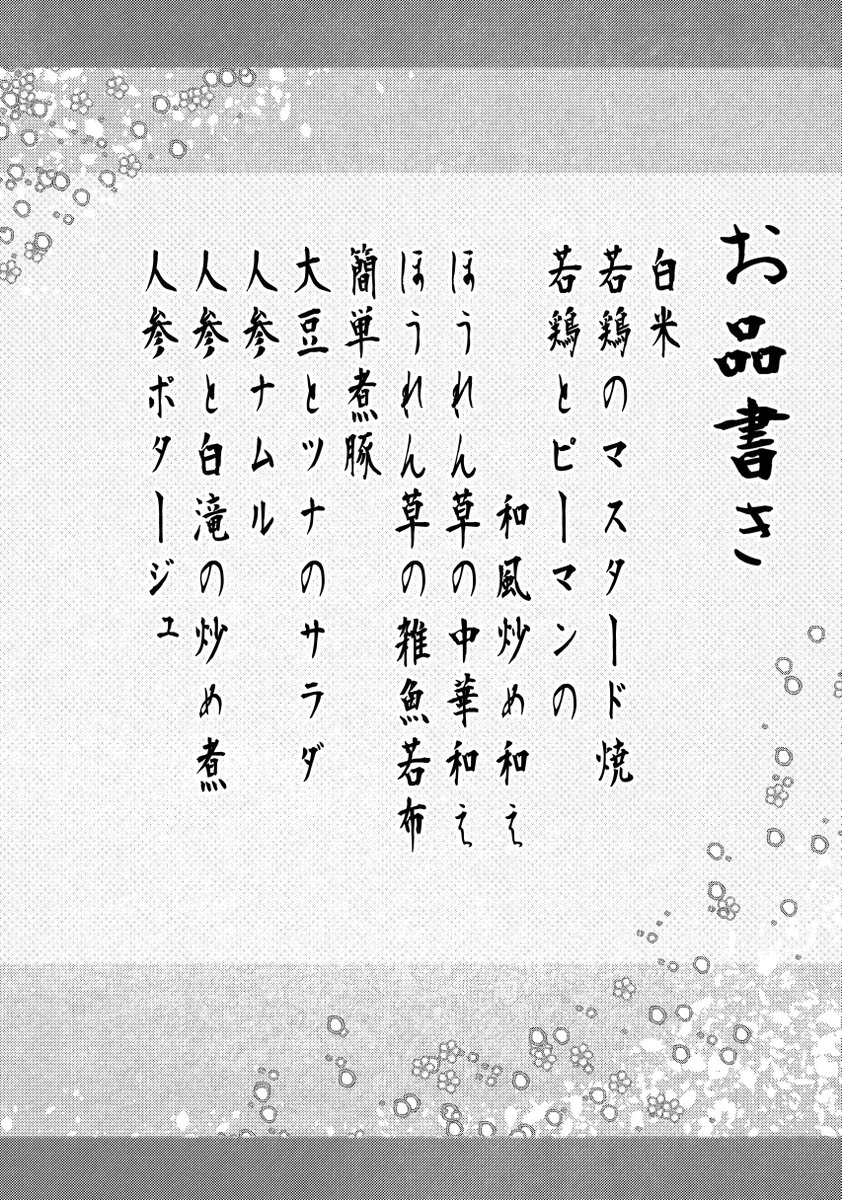 お品書き
白米
若鶏のマスタード焼
若鶏とピーマンの
和風炒め和え
ほうれん草の中華和え
ほうれん草の雑魚若布
簡単煮豚
大豆とツナのサラダ
人参ナムル
人参と白滝の炒め煮
人参ポタージュ